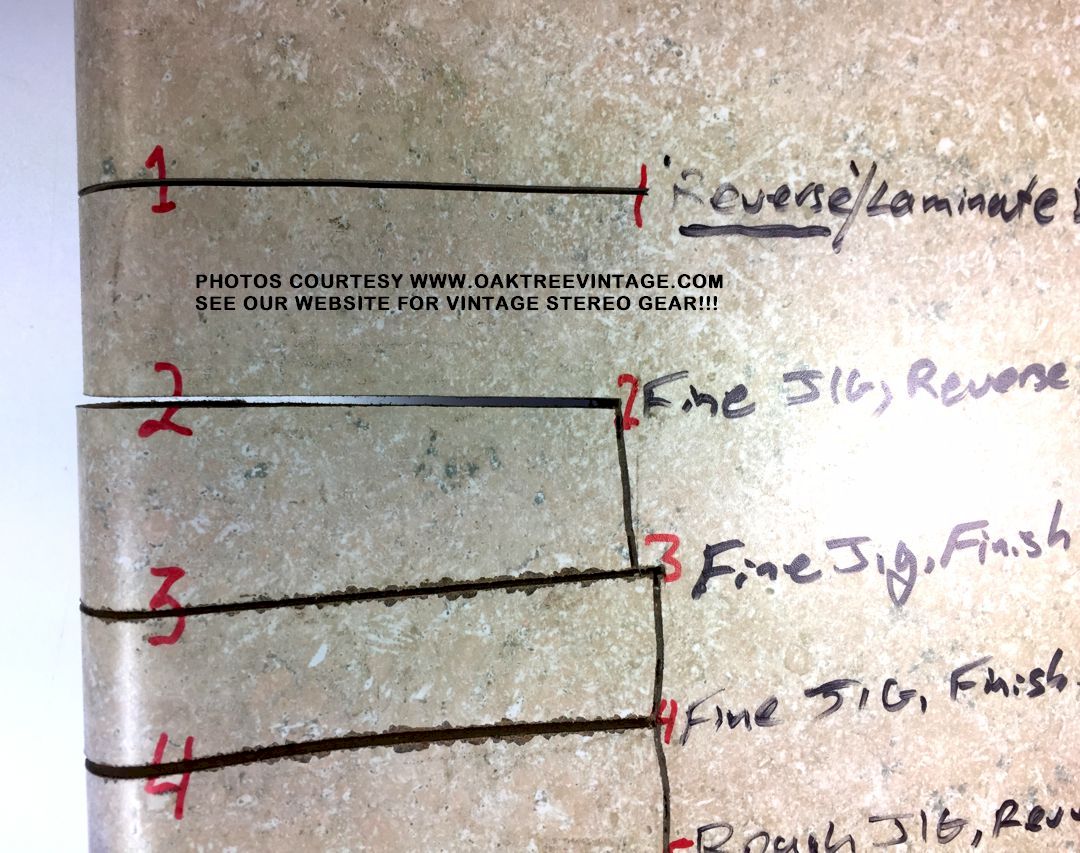 1
1 "Reverse"/Laminate
PHOTOS COURTESY WWW.OAKTREEVINTAGE.COM
SEE OUR WEBSITE FOR VINTAGE STEREO GEAR!!!
2
2 Fine JIG, Reverse
3 Fine Jig, Finish
3
4 Fine JIG, Finish
4
Rough JIG,